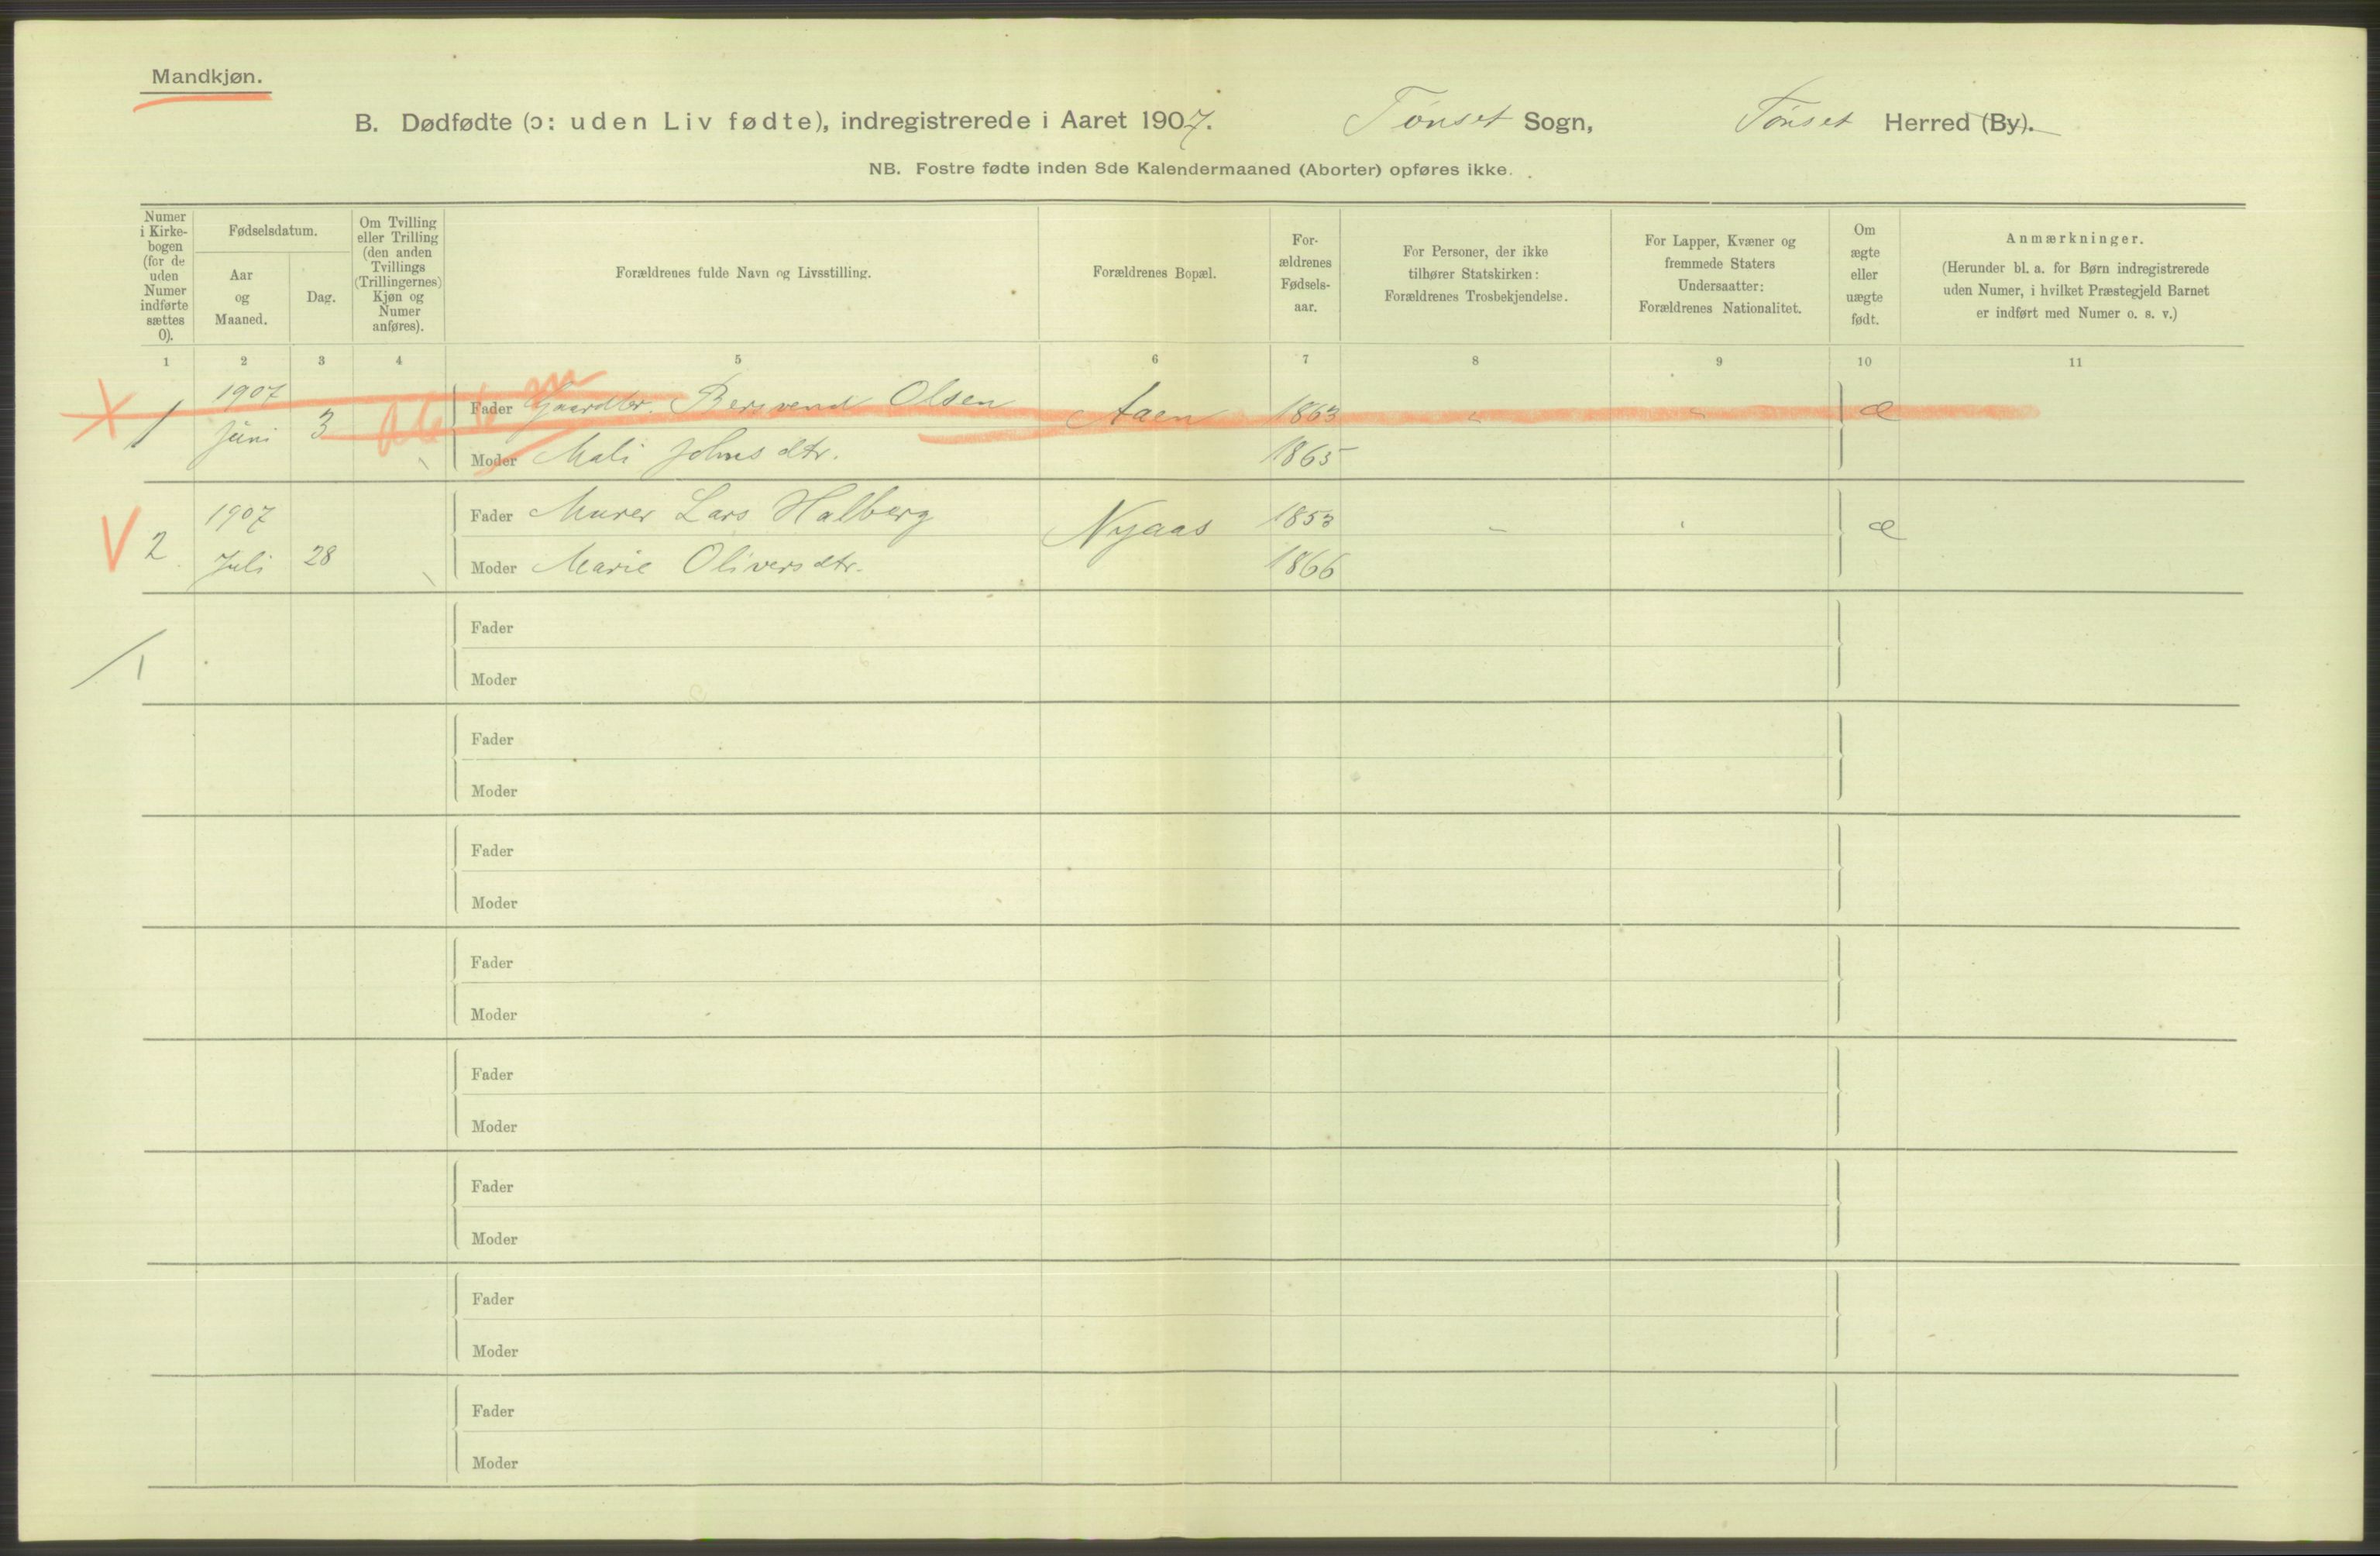 Mandkjøn.
B. Dødfødte (ɔ: uden Liv fødte), indregistrerede i Aaret 1907. Tønset Sogn, Tønset Herred (By).
NB. Fostre fødte inden 8de Kalendermaaned (Aborter) opføres ikke.
Numer i Kirke-bogen (for de uden Numer indførte sættes 0).
Fødselsdatum.
Aar og Maaned.
Dag.
Om Tvilling eller Trilling (den anden Tvillings (Trillingernes) Kjøn og Numer anføres).
Forældrenes fulde Navn og Livsstilling.
Forældrenes Bopæl.
For-ældrenes Fødsels-aar.
For Personer, der ikke tilhører Statskirken: Forældrenes Trosbekjendelse.
For Lapper, Kvæner og fremmede Staters Undersaatter: Forældrenes Nationalitet.
Om ægte eller uægte født.
Anmærkninger.
(Herunder bl. a. for Børn indregistrerede uden Numer, i hvilket Præstegjeld Barnet er indført med Numer o. s. v.)
1 2 3 4 5 6 7 8 9 10 11
1 1907 Juni 3 Fader Gaardbr. Bersvend Olsen Aaen 1863 " " æ
Moder Mali Johnsdtr. 1865
2 1907 Juli 28 Fader Murer Lars Halberg Nyaas 1853 " " æ
Moder Marie Oliversdtr. 1866
1
Fader
Moder
Fader
Moder
Fader
Moder
Fader
Moder
Fader
Moder
Fader
Moder
Fader
Moder
Fader
Moder